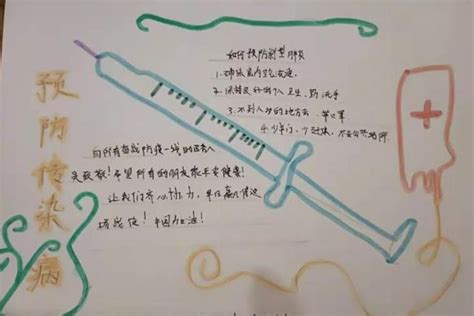 预防传染病
如何预防新型肺炎
1.确保室内空气流通。
2.保持良好的个人卫生,勤洗手
3.不到人多的地方去,带口罩
4.少串门,少聚集,不去公共场所
向所有奋战防疫一线的医务人
员致敬!希望所有的朋友家平安健康!
让我们齐心协力,早日赢得这
场战役!中国加油!